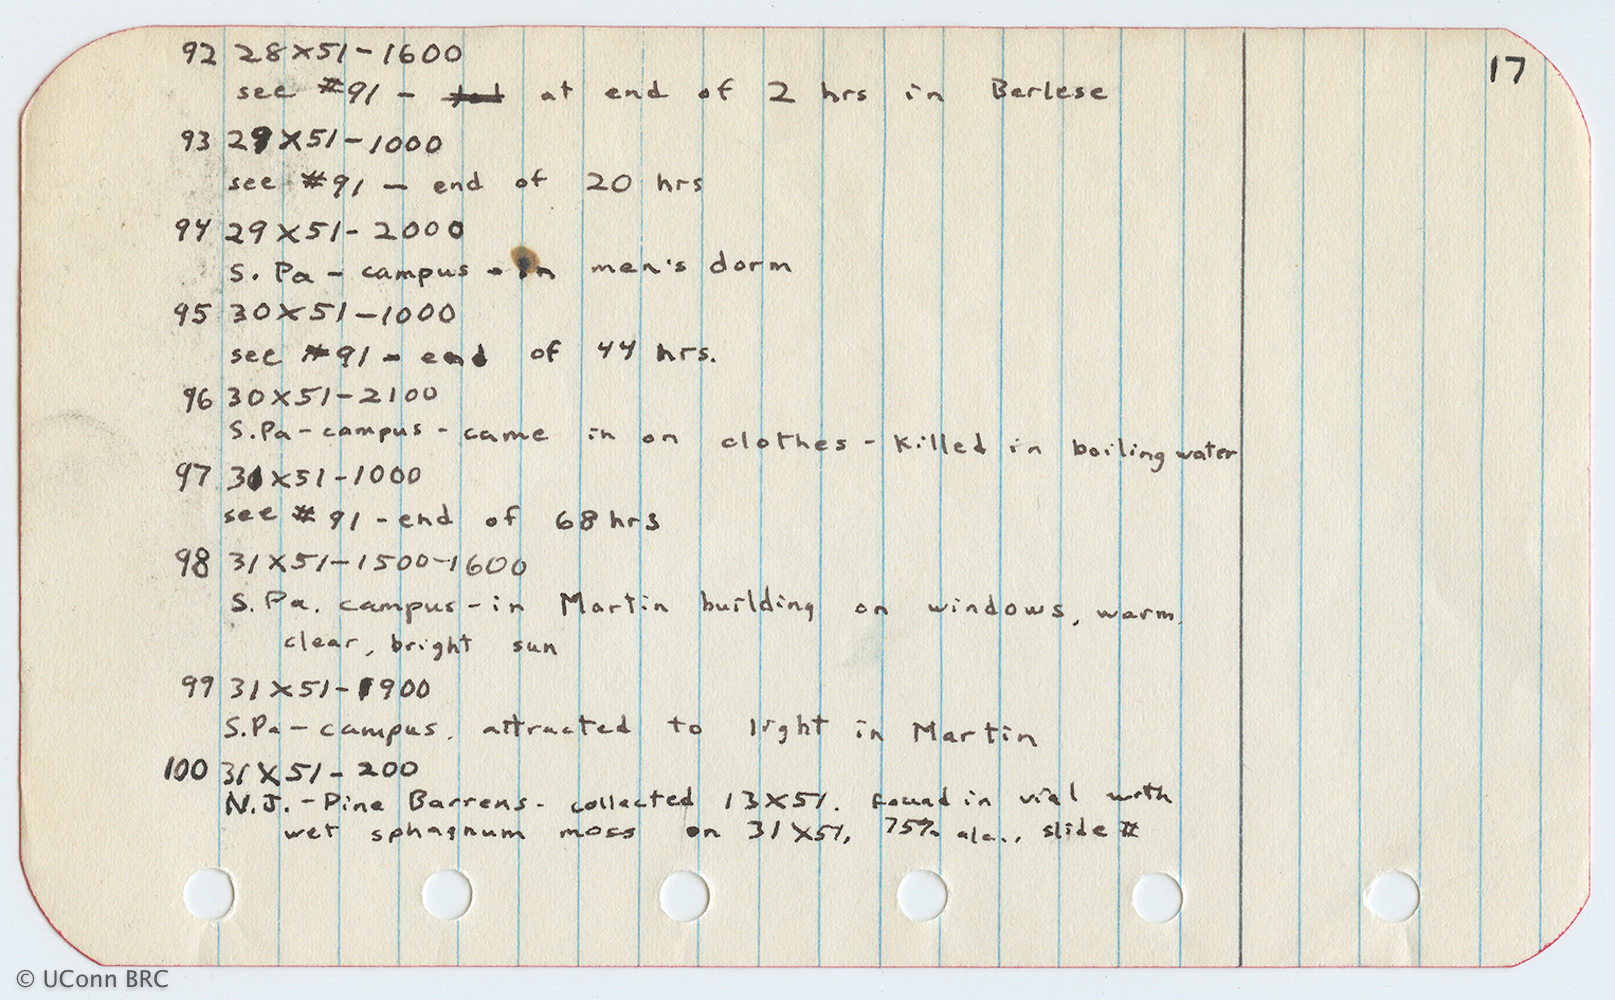 17
92 28X51-1600
see #91 - at end of 2 hrs in Berlese
93 29X51-1000
see #91 - end of 20 hrs
94 29X51-2000
S. Pa - campus - in men's dorm
95 30X51-1000
see #91 - end of 44 hrs.
96 30X51-2100
S.Pa-campus - came in on clothes - killed in boiling water
97 31X51-1000
see #91 - end of 68 hrs
98 31X51-1500-1600
S. Pa. campus - in Martin building on windows, warm,
clear, bright sun
99 31X51-1900
S.Pa-campus. attracted to light in Martin
100 31X51-200
N.J. - Pine Barrens - collected 13X51. found in vial with
wet sphagnum moss on 31X51, 75% alc., slide #
© UConn BRC